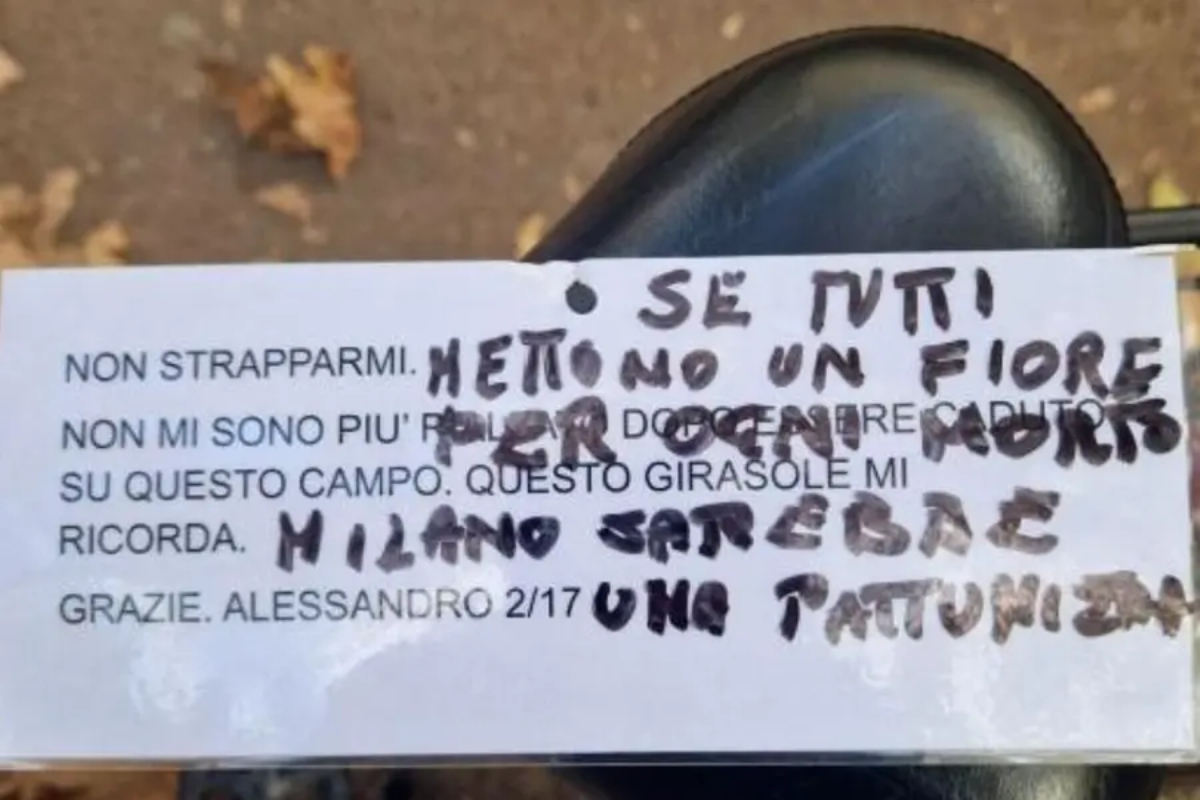 SE TUTTI
NON STRAPPARMI. METTONO UN FIORE
NON MI SONO PIU' RIALZATO DOPO ESSERE CADUTO
PER OGNI MORTO
SU QUESTO CAMPO. QUESTO GIRASOLE MI
RICORDA. MILANO SAREBBE
GRAZIE. ALESSANDRO 2/17 UNA PATTUMIERA